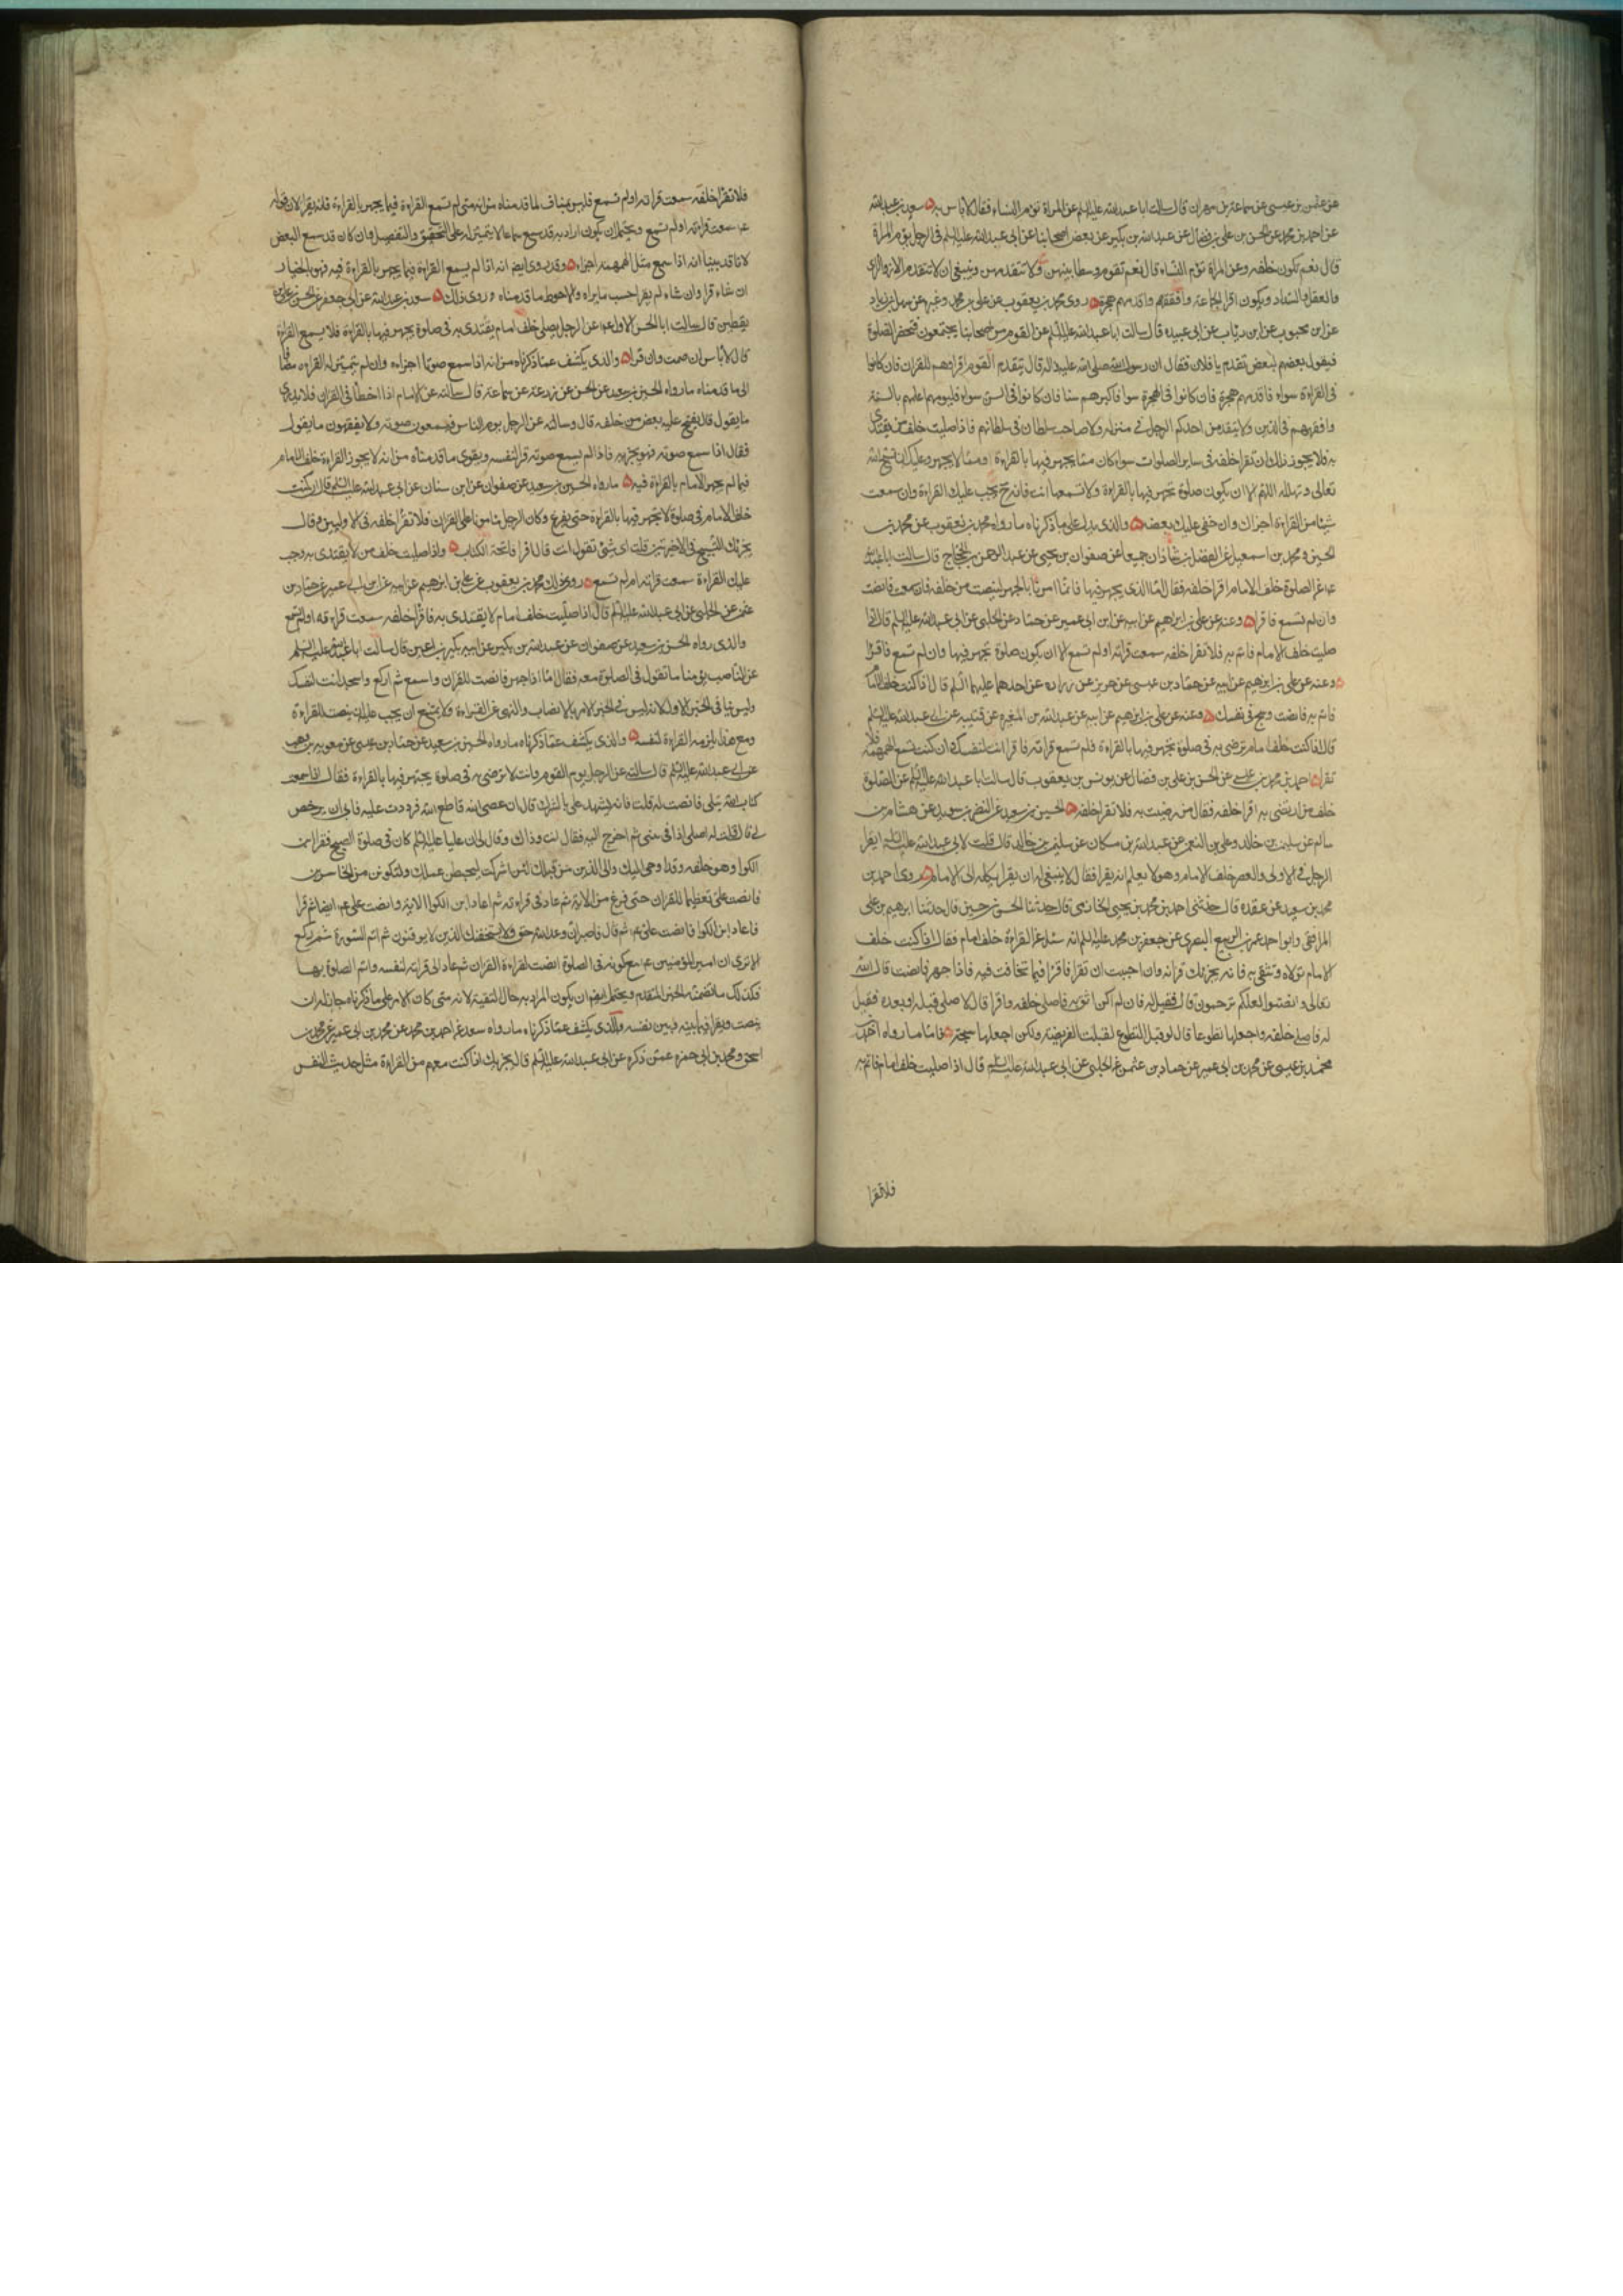 عن عثمن بن عيسى عن سماعة بن مهران قال سالت ابا عبدالله عليه السلم عن المراة تؤم النساء فقال لا باس به سعد بن عبدالله
عن احمد بن محمد عن الحسن بن علي بن فضال عن عبدالله بن بكير عن بعض اصحابنا عن ابي عبدالله عليه السلم في الرجل يؤم المراة
قال نعم تكون خلفه وعن المراة تؤم النساء قال نعم تقوم وسطا بينهن ولا تتقدمهن وينبغي ان لا يتقدم الا ذو الراي
والعقل والسداد ويكون اقرا الجماعة وافقههم واقدمهم هجرة روى محمد بن يعقوب عن علي بن محمد وغيره عن سهل بن زياد
عن ابن محبوب عن ابن رئاب عن ابي عبيده قال سالت ابا عبدالله عليه السلم عن القوم من اصحابنا يجتمعون فتحضر الصلوة
فيقول بعضهم لبعض تقدم يا فلان فقال ان رسول الله صلى الله عليه واله قال يتقدم القوم اقراهم للقران فان كانوا
في القراءة سواء فاقدمهم هجرة فان كانوا في الهجرة سوا فاكبرهم سنا فان كانوا في السن سواء فليؤمهم اعلمهم بالسنة
وافقههم في الدين ولا يتقدمن احدكم الرجل في منزله ولا صاحب سلطان في سلطانهم فاذا صليت خلف من يقتدى
به فلا يجوز لك ان تقرا خلفه في ساير الصلوات سواء كان مما يجهر فيها بالقراءة او مما لا يجهر وعليك ان تسبح الله
تعالى وتهلله اللهم الا ان يكون صلوة تجهر فيها بالقراءة ولا تسمعها انت فانه ح يجب عليك القراءة وان سمعت
شيئا من القراءة اجزاك وان خفي عليك بعضه والذي يدل على ما ذكرناه ما رواه محمد بن يعقوب عن محمد بن
الحسين ومحمد بن اسمعيل عن الفضل بن شاذان جميعا عن صفوان بن يحيى عن عبد الرحمن بن الحجاج قال سالت ابا عبدالله
ع عن الصلوة خلف الامام اقرا خلفه فقال اما الذي يجهر فيها فانما امرنا بالجهر لينصت من خلفه فان سمعت فانصت
وان لم تسمع فاقرا وعنه عن علي بن ابراهيم عن ابيه عن ابن ابي عمير عن حماد عن الحلبي عن ابي عبدالله عليه السلم قال اذا
صليت خلف الامام فاتم به فلا تقرا خلفه سمعت قراته او لم تسمع الا ان يكون صلوة تجهر فيها وان لم تسمع فاقرا
وعنه عن علي بن ابراهيم عن ابيه عن حماد بن عيسى عن حريز عن زرارة عن احدهما عليهما السلم قال اذا كنت خلف امام
فاتم به فانصت وسبح في نفسك وعنه عن علي بن ابراهيم عن ابيه عن عبدالله بن المغيره عن قتيبه عن ابي عبدالله عليه السلم
قال اذا كنت خلف امام ترضى به في صلوة تجهر فيها بالقراءة فلم تسمع قراته فاقرا انت لنفسك وان كنت تسمع الهمهمة فلا
تقرا احمد بن محمد بن عن الحسن بن علي بن فضال عن يونس بن يعقوب قال سالت ابا عبدالله عليه السلم عن الصلوة
خلف من ارتضي به اقرا خلفه فقال من رضيت به فلا تقرا خلفه الحسين بن سعيد عن النضر بن سويد عن هشام بن
سالم عن سليمن بن خالد وعلي بن النعمن عن عبدالله بن مسكان عن سليمن بن خالد قال قلت لابي عبدالله عليه السلم ايقرا
الرجل في الاولى والعصر خلف الامام وهو لا يعلم انه يقرا فقال لا ينبغي له ان يقرا يكله الى الامام وروى احمد بن
محمد بن سعيد عن عقده قال حدثني احمد بن محمد بن يحيى الخازمي قال حدثنا الحسن بن حسين قال حدثنا ابرهيم بن علي
المرافقي وابو احمد عمر بن الربيع البصري عن جعفر بن محمد عليه السلم انه سئل عن القراءة خلف امام فقال اذا كنت خلف
الامام تولاه وتثق به فانه يجزيك قراته وان احببت ان تقرا فاقرا فيما تخافت فيه فاذا جهر فانصت قال الله
تعالى وانصتوا لعلكم ترحمون قال فقيل له فان لم اكن اثق به فاصلي خلفه واقرا قال لا صلي قبله او بعده فقيل
له فاصلي خلفه واجعلها تطوعا قال لو قبل التطوع لقبلت الفريضة ولكن اجعلها سبحة فاما ما رواه احمد بن
محمد بن عيسى عن محمد بن ابي عمير عن حماد بن عثمن عن الحلبي عن ابي عبدالله عليه السلم قال اذا صليت خلف امام فاتم به
فلا تقرا
فلا تقرا خلفه سمعت قراته او لم تسمع فليس بمناف لما قدمناه من انه متى لم تسمع القراءة فيما يجهر بالقراءة فانه يقرا لان قوله
ع سمعت قراءته او لم تسمع ويحتمل ان يكون اراد به قد سمع سماعا لا يتميز له على التحقيق والتفصيل وان كان قد سمع البعض
لانا قد بينا انه اذا سمع مثل الهمهمة اجزاه وقد روى ايضا انه اذا لم يسمع القراءة فيما يجهر بالقراءة فيه فهو بالخيار
ان شاء قرا وان شاء لم يقرا حسب ما يراه والاحوط ما قدمناه روى ذلك سعد بن عبدالله عن ابي جعفر عن الحسن بن علي بن
يقطين قال سالت ابا الحسن الاول ع عن الرجل يصلي خلف امام يقتدى به في صلوة يجهر فيها بالقراءة فلا يسمع القراءة
قال لا باس ان صمت وان قرا والذي يكشف عما ذكرناه من انه اذا سمع صوتا اجزاه وان لم يتميز له القراءة مضافا
الى ما قدمناه ما رواه الحسين بن سعيد عن الحسن عن زرعة عن سماعة قال سالته عن الامام اذا اخطا في القران فلا يدري
ما يقول قال يفتح عليه بعض من خلفه قال وسالته عن الرجل يؤم الناس فيسمعون صوته ولا يفقهون ما يقول
فقال اذا سمع صوته فهو يجزيه فاذا لم يسمع صوته قرا لنفسه ويقوى ما قدمناه من انه لا يجوز القراءة خلف الامام
فيما لم يجهر الامام بالقراءة فيه ما رواه الحسين بن سعيد عن صفوان عن ابن سنان عن ابي عبدالله عليه السلم قال ان كنت
خلف الامام في صلوة لا يجهر فيها بالقراءة حتى يفرغ وكان الرجل مامونا على القران فلا تقرا خلفه في الاوليين وقال
يجزيك التسبيح في الاخيرتين قلت اي شئ تقول انت قال اقرا فاتحة الكتاب واذا صليت خلف من لا يقتدى به وجب
عليك القراءة سمعت قراته ام لم تسمع روى ذلك محمد بن يعقوب عن علي بن ابرهيم عن ابيه عن ابن ابي عمير عن حماد بن
عثمن عن الحلبي عن ابي عبدالله عليه السلم قال اذا صليت خلف امام لا يقتدى به فاقرا خلفه سمعت قراءته او لم تسمع
والذي رواه الحسين بن سعيد عن صفوان عن عبدالله بن بكير عن ابيه بكير بن اعين قال سالت ابا عبدالله عليه السلم
عن الناصب يؤمنا ما تقول في الصلوة معه فقال اما اذا جهر فانصت للقران واسمع ثم اركع واسجد انت لنفسك
وليس ينافي الخبر الاول لانه ليس في الخبر الامر بالانصات والنهي عن القراءة ولا يمتنع ان يجب عليه ان ينصت للقراءة
ومع هذا يلزمه القراءة لنفسه والذي يكشف عما ذكرناه ما رواه الحسين بن سعيد عن حماد بن عيسى عن معوية بن وهب
عن ابي عبدالله عليه السلم قال سالته عن الرجل يؤم القوم وانت لا ترضى به في صلوة يجهر فيها بالقراءة فقال اذا سمعت
كتاب الله يتلى فانصت له قلت فانه يشهد علي بالشرك قال ان عصى الله فاطع الله فرددت عليه فابى ان يرخص
لي قال قلت له اصلي اذا في بيتي ثم اخرج اليه فقال انت وذاك وقال ان عليا عليه السلم كان في صلوة الصبح فقرا ابن
الكوا وهو خلفه ولقد اوحي اليك والى الذين من قبلك لئن اشركت ليحبطن عملك ولتكونن من الخاسرين
فانصت علي تعظيما للقران حتى فرغ من الاية ثم عاد في قراءته ثم اعاد ابن الكوا الاية وانصت علي ع ايضا ثم قرا
فاعاد ابن الكوا فانصت علي ع ثم قال فاصبر ان وعد الله حق ولا يستخفنك الذين لا يوقنون ثم اتم السورة ثم ركع
الا ترى ان امير المؤمنين ع مع كونه في الصلوة انصت لقراءة القران ثم عاد الى قراءته لنفسه واتم الصلوة بها
فكذلك ما تضمنه الخبر المتقدم ويحتمل ايضا ان يكون المراد به حال التقية لانه متى كان الامر على ما ذكرناه جاز له ان
ينصت ويقرا فيما بينه وبين نفسه والذي يكشف عما ذكرناه ما رواه سعد عن احمد بن محمد عن محمد بن ابي عمير عن محمد بن
اسحق ومحمد بن ابي حمزه عمن ذكره عن ابي عبدالله عليه السلم قال يجزيك اذا كنت معهم من القراءة مثل حديث النفس